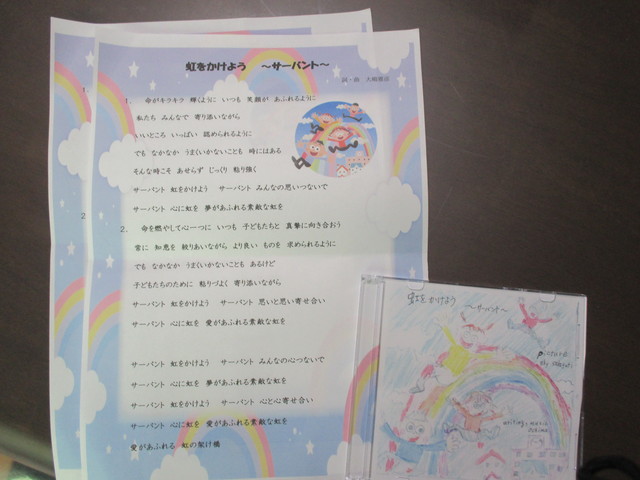 虹をかけよう ～サーバント～
詞・曲 大嶋
1. 命がキラキラ 輝くように いつも 笑顔が あふれるように
私たち みんなで 寄り添いながら
いいところ いっぱい 認められるように
でも なかなか うまくいかないことも 時にはある
そんな時こそ あせらず じっくり 粘り強く
サーバント 虹をかけよう サーバント みんなの思いつないで
サーバント 心に虹を 夢があふれる素敵な虹を
2. 命を燃やして心一つに いつも 子どもたちと 真摯に向き合おう
常に 知恵を 練りあいながら より良い ものを 求められるように
でも なかなか うまくいかないことも あるけど
子どもたちのために 粘りづよく 寄り添いながら
サーバント 虹をかけよう サーバント 思いと思い寄せ合い
サーバント 心に虹を 愛があふれる素敵な虹を
サーバント 虹をかけよう サーバント みんなの心つないで
サーバント 心に虹を 夢があふれる素敵な虹を
サーバント 虹をかけよう サーバント 心と心寄せ合い
サーバント 心に虹を 愛があふれる素敵な虹を
愛があふれる 虹の架け橋
1.
2
虹をかけよう
～サーバント～
picture
by
writing, music